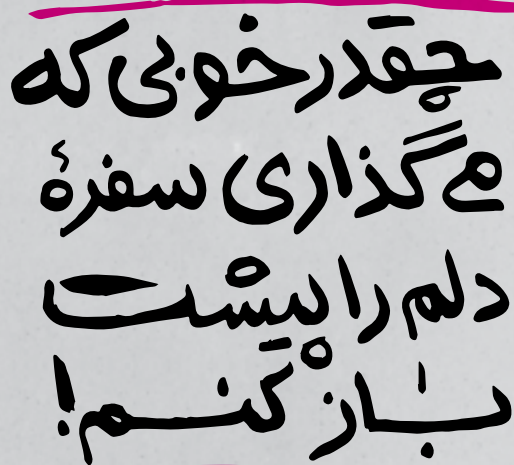 چقدر خوبی که
می‌گذاری سفرهٔ
دلم را پیشت
باز کنم!